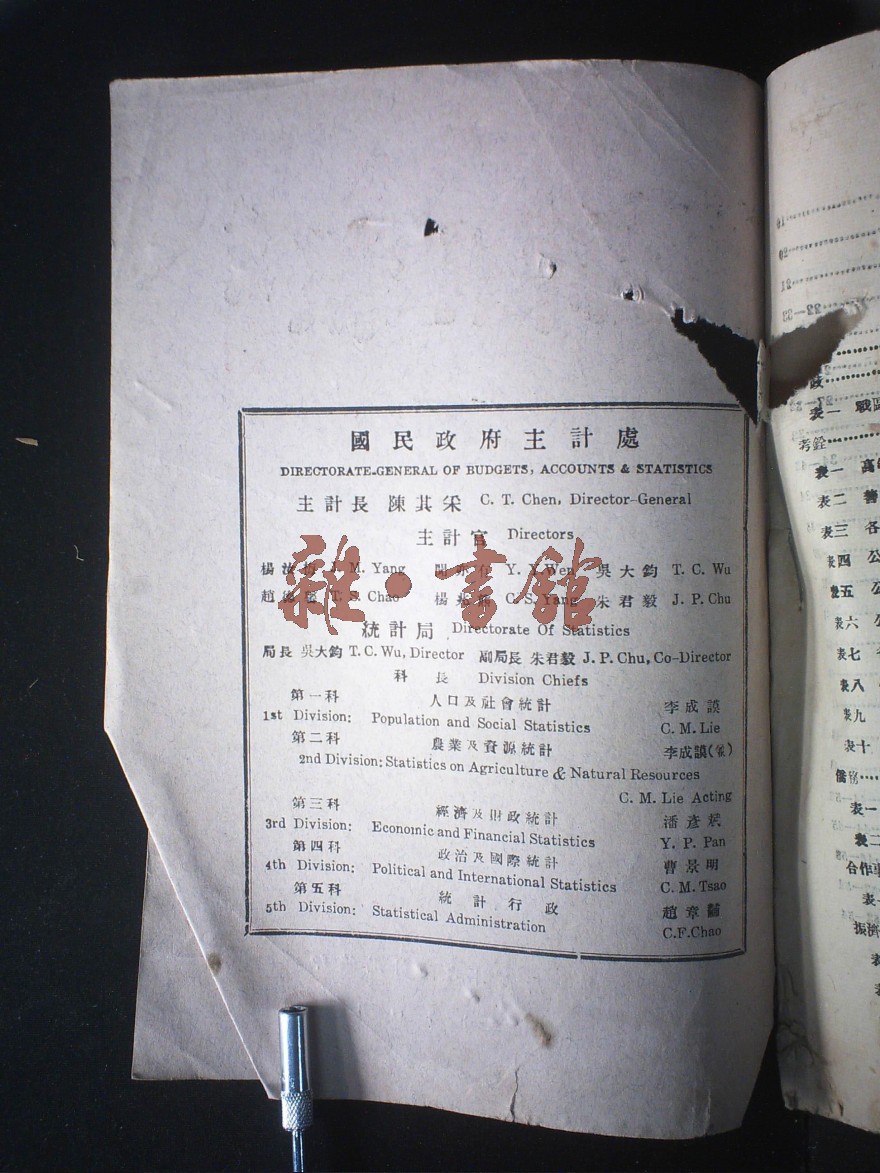 國民政府主計處
DIRECTORATE-GENERAL OF BUDGETS, ACCOUNTS & STATISTICS
主計長 陳其采 C. T. Chen, Director-General
主計官 Directors
楊汝梅 J. M. Yang Y. Y. Wen 吳大鈞 T. C. Wu
T. S. Chao 楊 C. S. Yang 朱君毅 J. P. Chu
統計局 Directorate Of Statistics
局長 吳大鈞 T. C. Wu, Director 副局長 朱君毅 J. P. Chu, Co-Director
科長 Division Chiefs
第一科 人口及社會統計 李成謨
1st Division: Population and Social Statistics C. M. Lie
第二科 農業及資源統計 李成謨
2nd Division: Statistics on Agriculture & Natural Resources
C. M. Lie Acting
第三科 經濟及財政統計 潘彥
3rd Division: Economic and Financial Statistics Y. P. Pan
第四科 政治及國際統計 曹景明
4th Division: Political and International Statistics C. M. Tsao
第五科 統計行政 趙章黼
5th Division: Statistical Administration C. F. Chao
雜·書館
19
20
21
表一 戰
考銓
表一 高
表二
表三 各
表四 公
表五 公
表六 公
表七
表八
表九
表十
表一
表二
合作事
表一